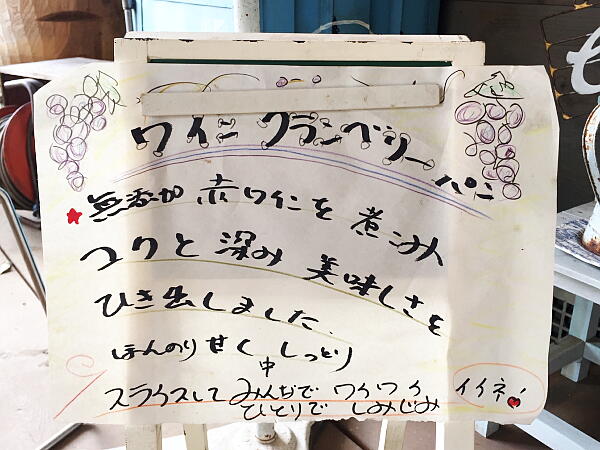 ワインクランベリーパン
無添加 赤ワインを 煮こみ
コクと 深み 美味しさを
ひき出しました.
ほんのり甘く しっとり
中
スライスして みんなで ワイワイ イイネ!
ひとりで しみじみ